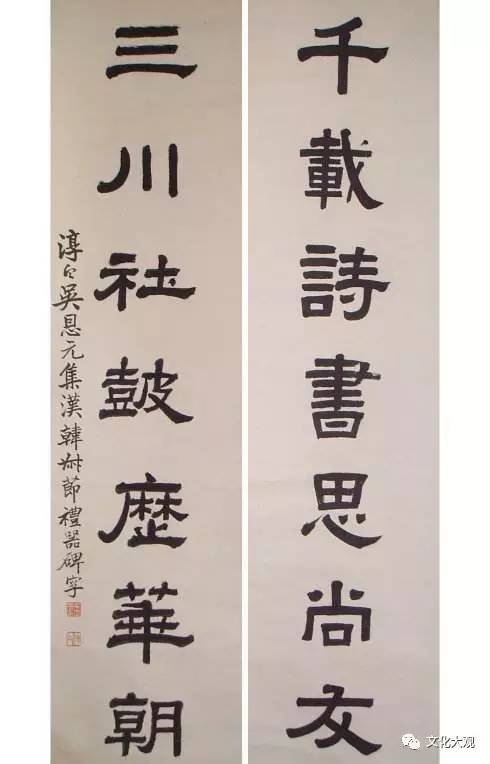 千載詩書思尚友
三川社鼓歷華朝
淳白吳恩元集漢韓敕節禮器碑字
文化大观